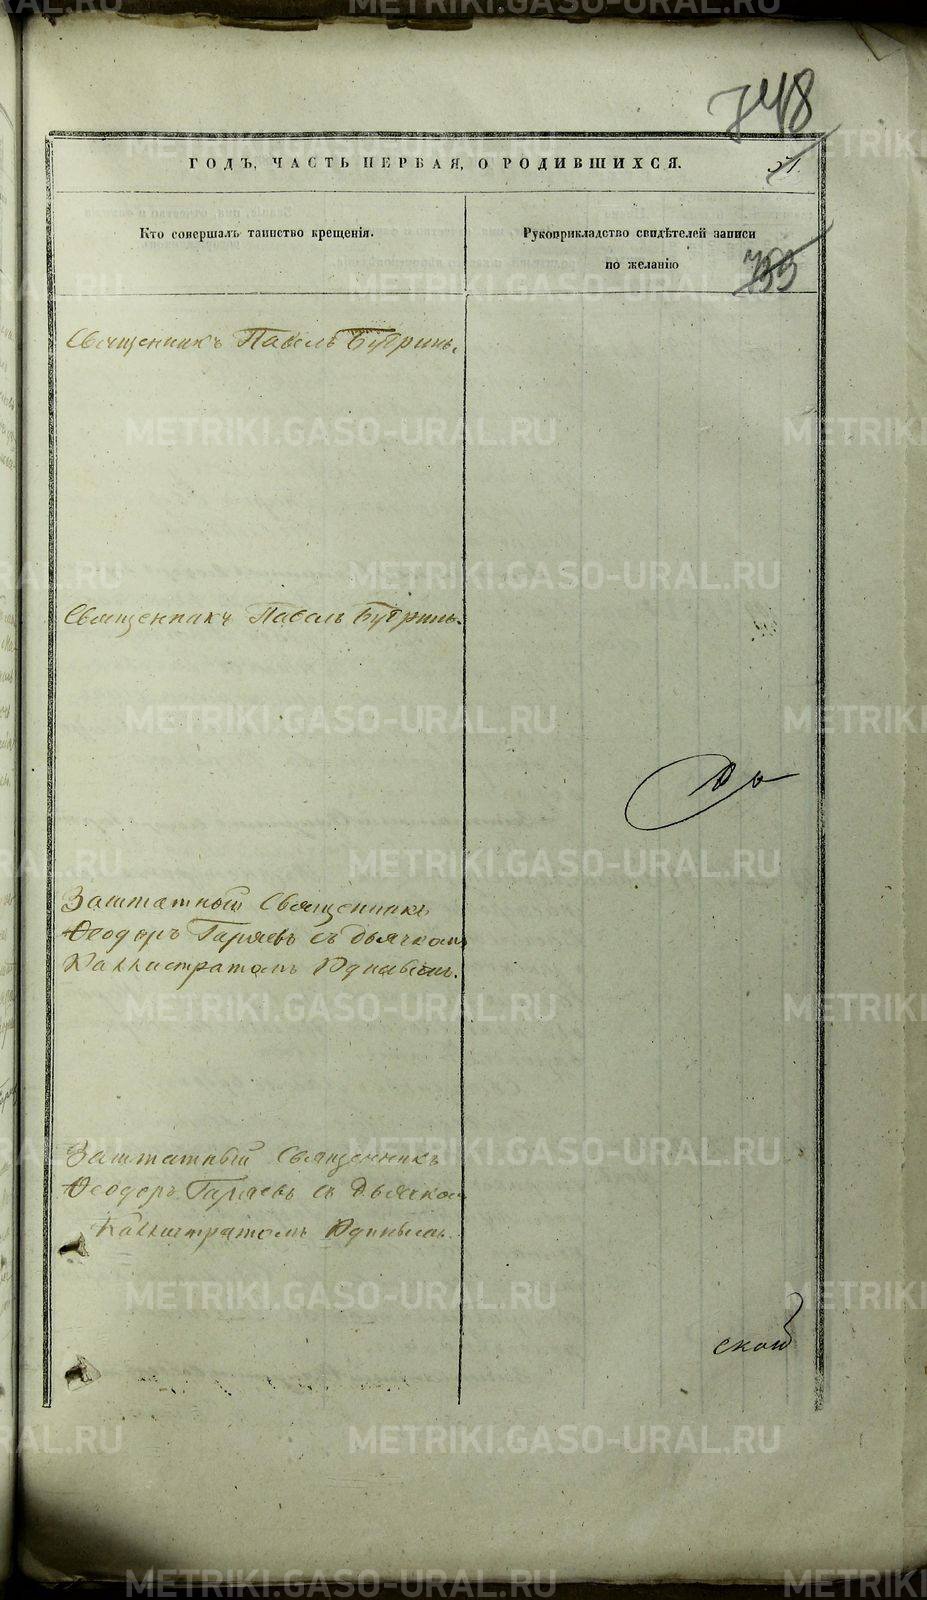 748
ГОДЪ, ЧАСТЬ ПЕРВАЯ, О РОДИВШИХСЯ.
51.
Кто совершалъ таинство крещенія.
Рукоприкладство свидѣтелей записи
по желанію
753
Священникъ Павелъ Бубринъ.
Священникъ Павелъ Бубринъ.
Заштатный Священникъ
Ѳеодоръ Гаряевъ съ Дьячкомъ
Каллистратомъ
Заштатный Священникъ
Ѳеодоръ Гаряевъ съ Дьячко
Каллистратомъ
ской
METRIKI.GASO-URAL.RU